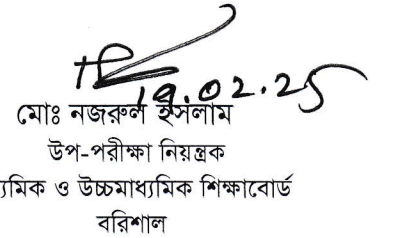 19.02.25
মোঃ নজরুল ইসলাম
উপ-পরীক্ষা নিয়ন্ত্রক
ও উচ্চমাধ্যমিক শিক্ষাবোর্ড
বরিশাল